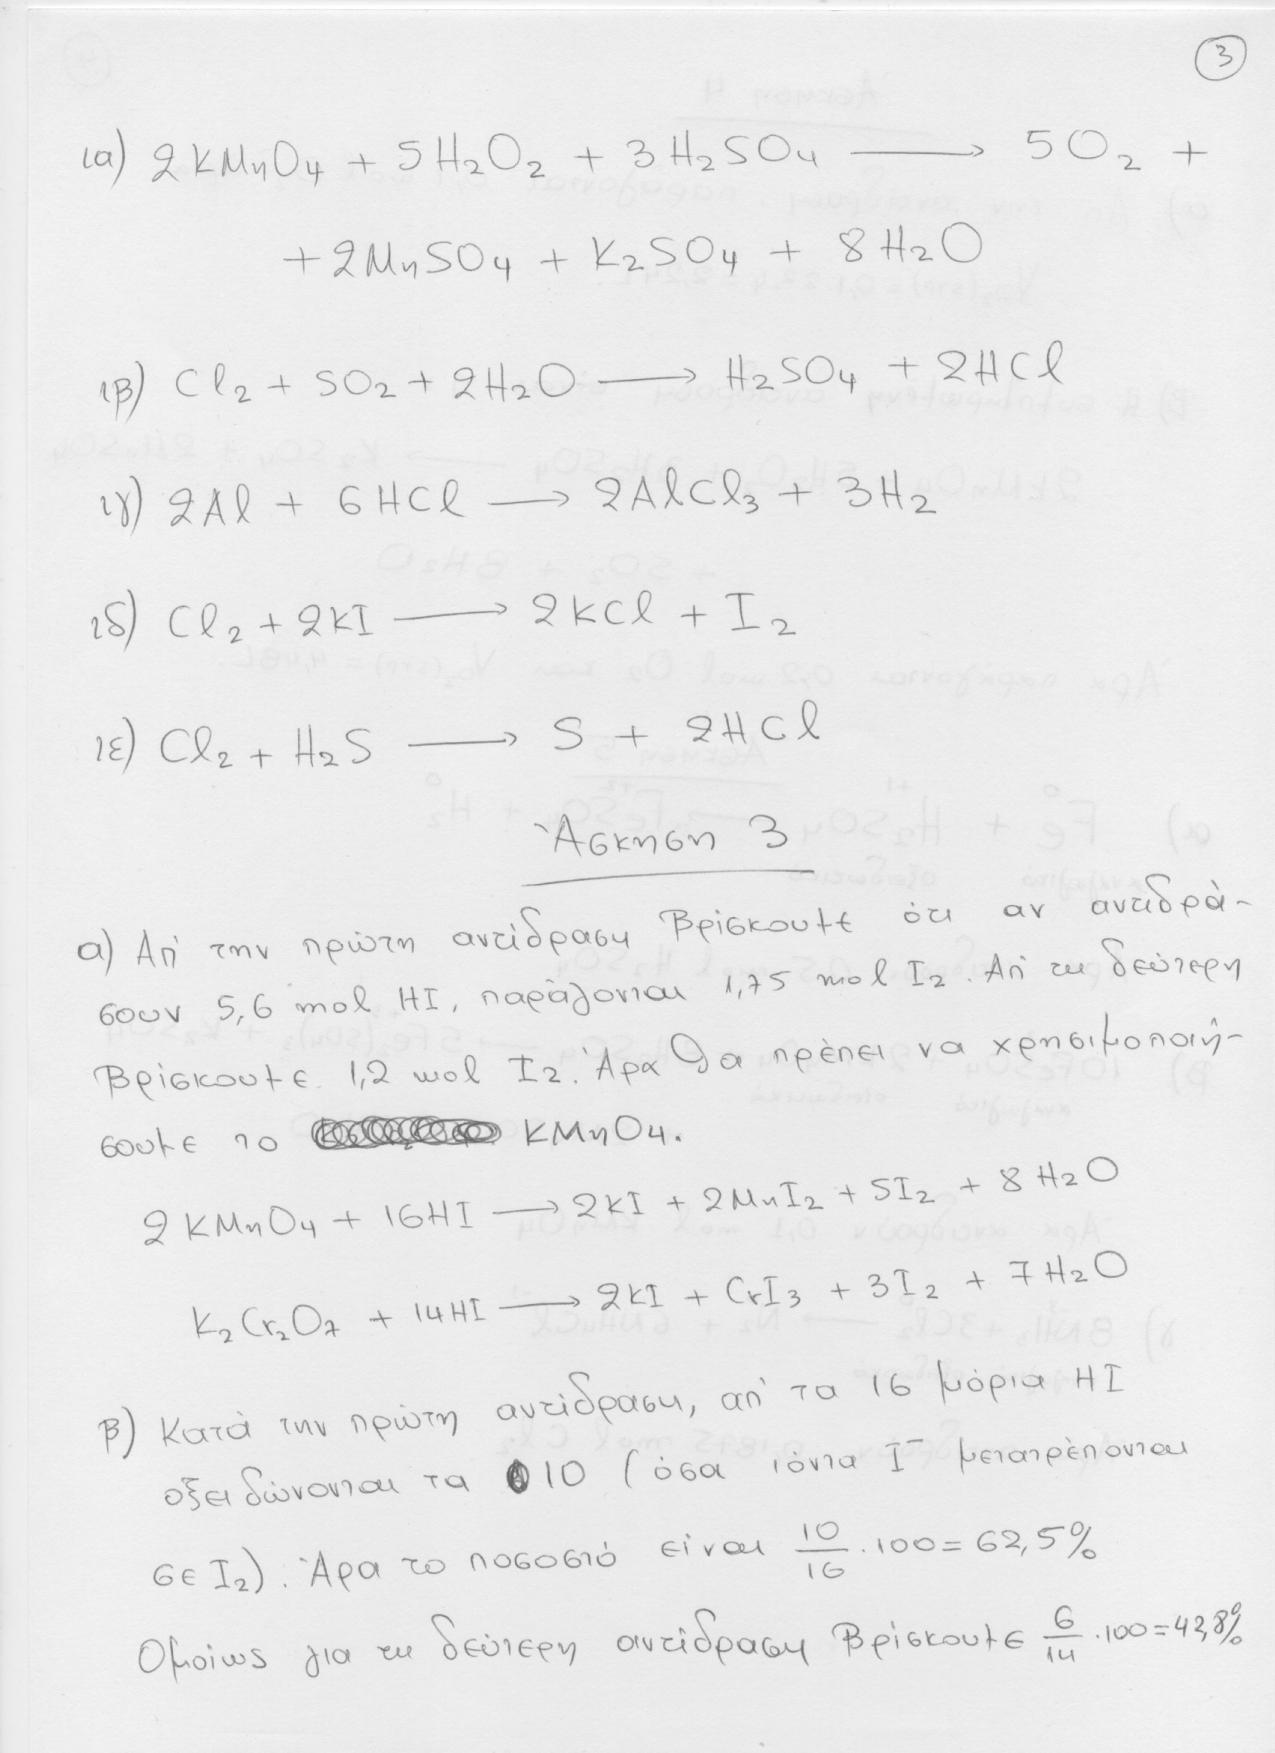 3
ια) 2KMnO4 + 5H2O2 + 3H2SO4 ⟶ 5O2 +
+ 2MnSO4 + K2SO4 + 8H2O
ιβ) Cl2 + SO2 + 2H2O ⟶ H2SO4 + 2HCl
ιγ) 2Al + 6HCl ⟶ 2AlCl3 + 3H2
ιδ) Cl2 + 2KI ⟶ 2KCl + I2
ιε) Cl2 + H2S ⟶ S + 2HCl
Άσκηση 3
α) Απ' την πρώτη αντίδραση βρίσκουμε ότι αν αντιδρά-
σουν 5,6 mol HI, παράγονται 1,75 mol I2. Απ' τη δεύτερη
βρίσκουμε 1,2 mol I2. Άρα θα πρέπει να χρησιμοποιή-
σουμε το KMnO4.
2KMnO4 + 16HI ⟶ 2KI + 2MnI2 + 5I2 + 8H2O
K2Cr2O7 + 14HI ⟶ 2KI + CrI3 + 3I2 + 7H2O
β) Κατά την πρώτη αντίδραση, απ' τα 16 μόρια HI
οξειδώνονται τα 10 (όσα ιόντα I⁻ μετατρέπονται
σε I2). Άρα το ποσοστό είναι 10/16 · 100 = 62,5%
Ομοίως για τη δεύτερη αντίδραση βρίσκουμε 6/14 · 100 = 42,8%